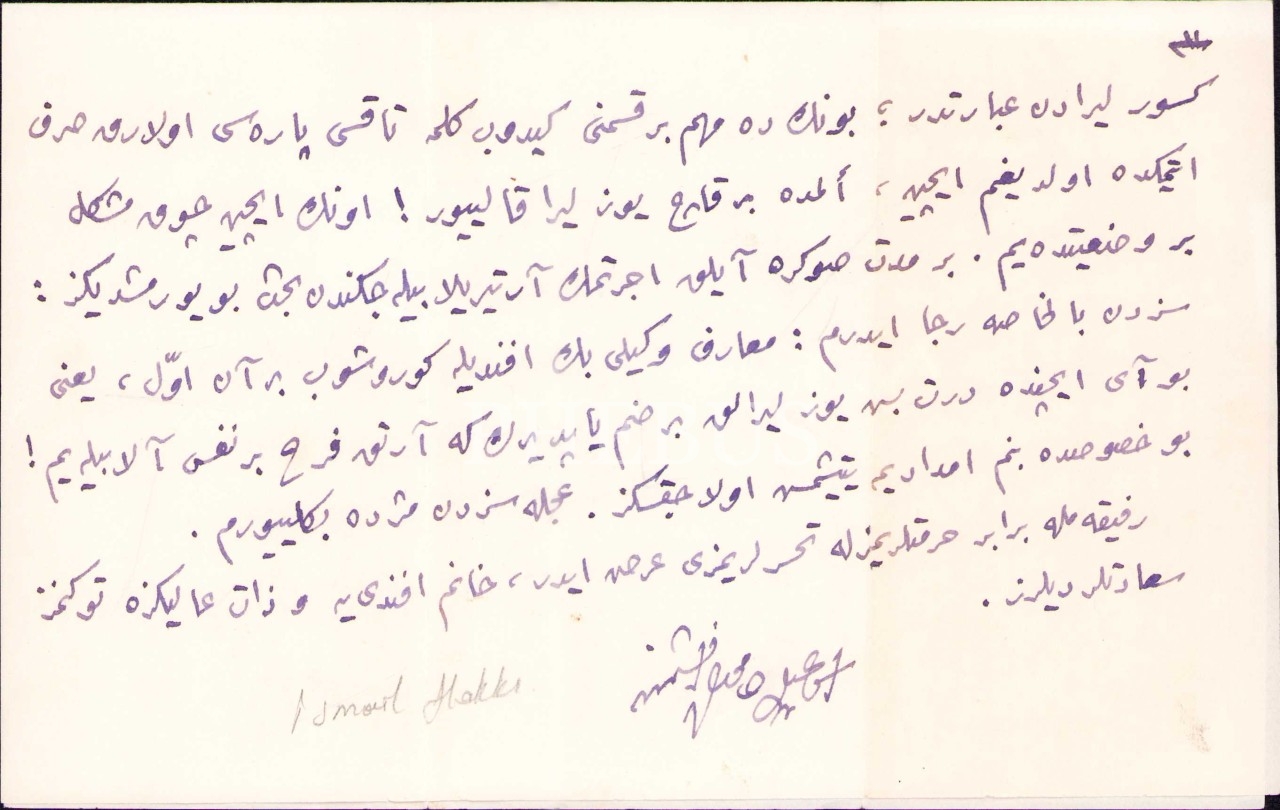 كسور ليرادن عبارتدر؛ بونك ده مهم بر قسمنى كيدوب كلمه تاقسى پاره‌سى اولارق صرف
ايتمكده اولديغم ايچين، ألمده بر قاچ يوز ليرا قاليیور! اونك ايچين چوق مشكل
بر وضعيتده‌يم. بر مدت صوكره آيلق اجرتمك آرتيريلابيله‌جكندن بحث بويورمشديكز:
سزدن بالخاصه رجا ايدرم: معارف وكيلى بك افنديله كوروشوب بر آن اوّل، يعنى
بو آى ايچنده درت بش يوز ليرالق بر ضم ياپديرك كه آرتق فرح بر نفس آلابيله‌يم!
بو خصوصده بنم امداديمه يتيشمش اولاجقسكز. عجله سزدن مژده بكليیورم.
رفيقه‌مله برابر حرمتلريمزله تحسرلريمزى عرض ايدر، خانم افندى‌يه و ذات عاليكزه توكنمز
سعادتلر ديلرز.
Ismail Hakkı